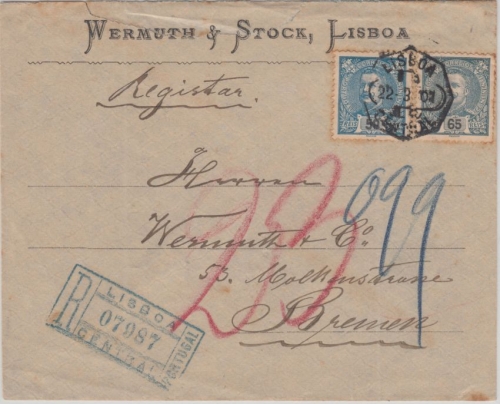 WERMUTH & STOCK, LISBOA
Registar.
LISBOA
22
65
Herren
Wermuth & Co.
53. Molkenstrasse
Bremen
099
R
LISBOA
07987
CENTRAL
PORTUGAL